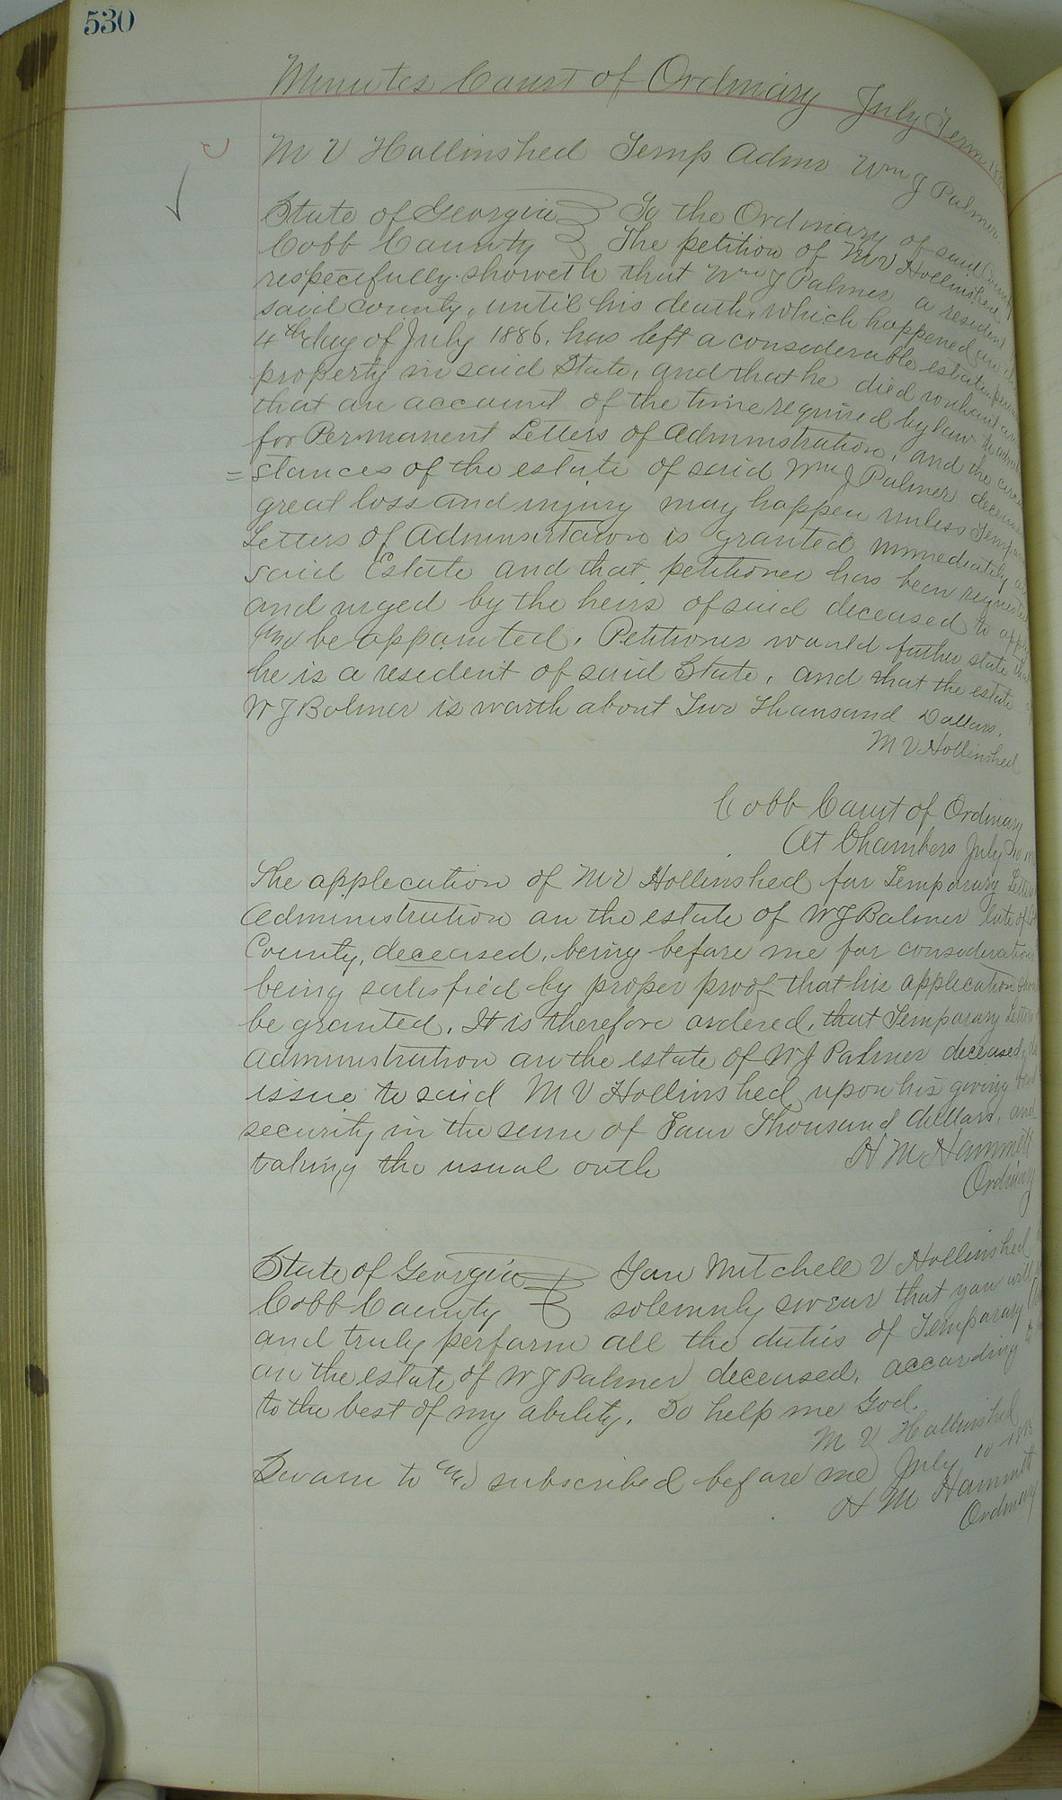 530
Minutes Court of Ordinary July Term
M V Hollinshed Temp Admr Wm J Palmer
State of Georgia To the Ordinary of said County
Cobb County The petition of M V Hollinshed
respecifully showeth that Wm J Palmer a resident
said County, until his death, which happened on the
4th day of July 1886, has left a considerable estate
property in said State, and that he died without
that on account of the time required by law to
for Permanent Letters of Administration, and the circum
= stances of the estate of said Wm J Palmer deceased
great loss and injury may happen unless Temp
Letters of Administration is granted immediately
said Estate and that petitioner has been requested
and urged by the heirs of said deceased to
and be appointed. Petitioner would further state that
he is a resident of said State, and that the estate
W J Balmer is worth about Two Thousand Dollars.
M V Hollinshed
Cobb Court of Ordinary
At Chambers July
The application of M V Hollinshed for Temporary Letters
Administration on the estate of W J Balmer late of
County, deceased, being before me for consideration
being satisfied by proper proof that his application
be granted. It is therefore ordered, that Temporary Letters
administration on the estate of W J Palmer deceased,
issue to said M V Hollinshed upon his giving
security in the sum of Four Thousand dollars, and
taking the usual oath H M Hammett
Ordinary
State of Georgia You Mitchell V Hollinshed
Cobb County solemnly swear that you will
and truly perform all the duties of Temporary
on the estate of W J Palmer deceased, according to
to the best of my ability. So help me God.
M V Hollinshed
Sworn to and subscribed before me July 10
H M Hammett
Ordinary